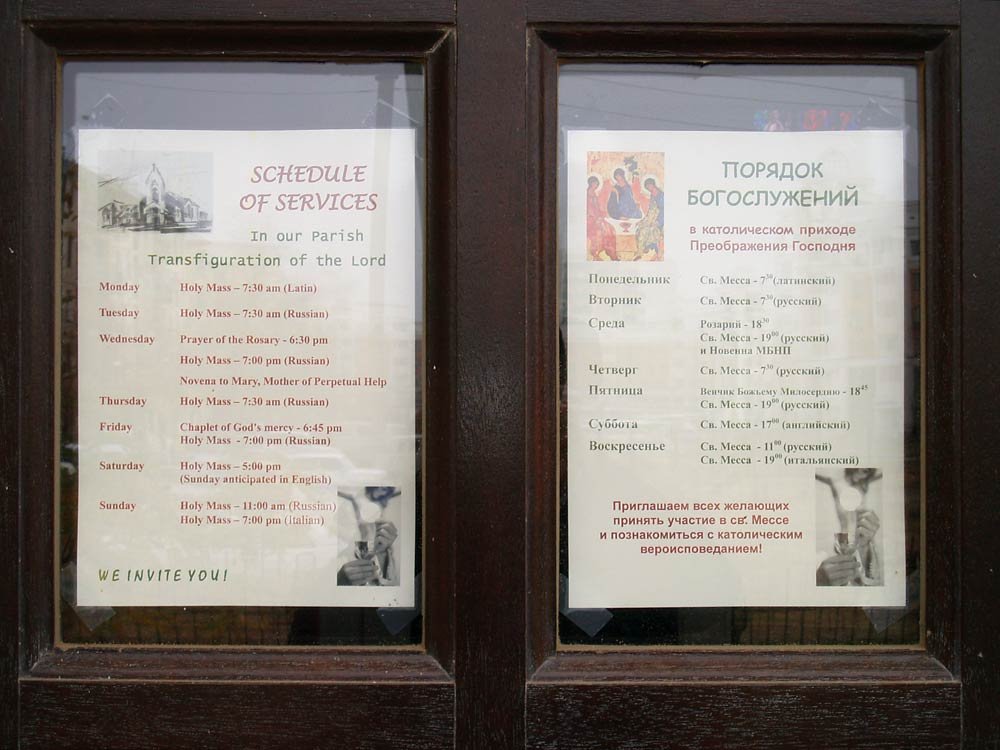 SCHEDULE
OF SERVICES
In our Parish
Transfiguration of the Lord
Monday Holy Mass – 7:30 am (Latin)
Tuesday Holy Mass – 7:30 am (Russian)
Wednesday Prayer of the Rosary - 6:30 pm
Holy Mass – 7:00 pm (Russian)
Novena to Mary, Mother of Perpetual Help
Thursday Holy Mass – 7:30 am (Russian)
Friday Chaplet of God's mercy - 6:45 pm
Holy Mass - 7:00 pm (Russian)
Saturday Holy Mass – 5:00 pm
(Sunday anticipated in English)
Sunday Holy Mass – 11:00 am (Russian)
Holy Mass – 7:00 pm (Italian)
WE INVITE YOU!
ПОРЯДОК
БОГОСЛУЖЕНИЙ
в католическом приходе
Преображения Господня
Понедельник Св. Месса - 7³⁰ (латинский)
Вторник Св. Месса - 7³⁰ (русский)
Среда Розарий - 18³⁰
Св. Месса - 19⁰⁰ (русский)
и Новенна МБНП
Четверг Св. Месса - 7³⁰ (русский)
Пятница Венчик Божьему Милосердию - 18⁴⁵
Св. Месса - 19⁰⁰ (русский)
Суббота Св. Месса - 17⁰⁰ (английский)
Воскресенье Св. Месса - 11⁰⁰ (русский)
Св. Месса - 19⁰⁰ (итальянский)
Приглашаем всех желающих
принять участие в св. Мессе
и познакомиться с католическим
вероисповеданием!